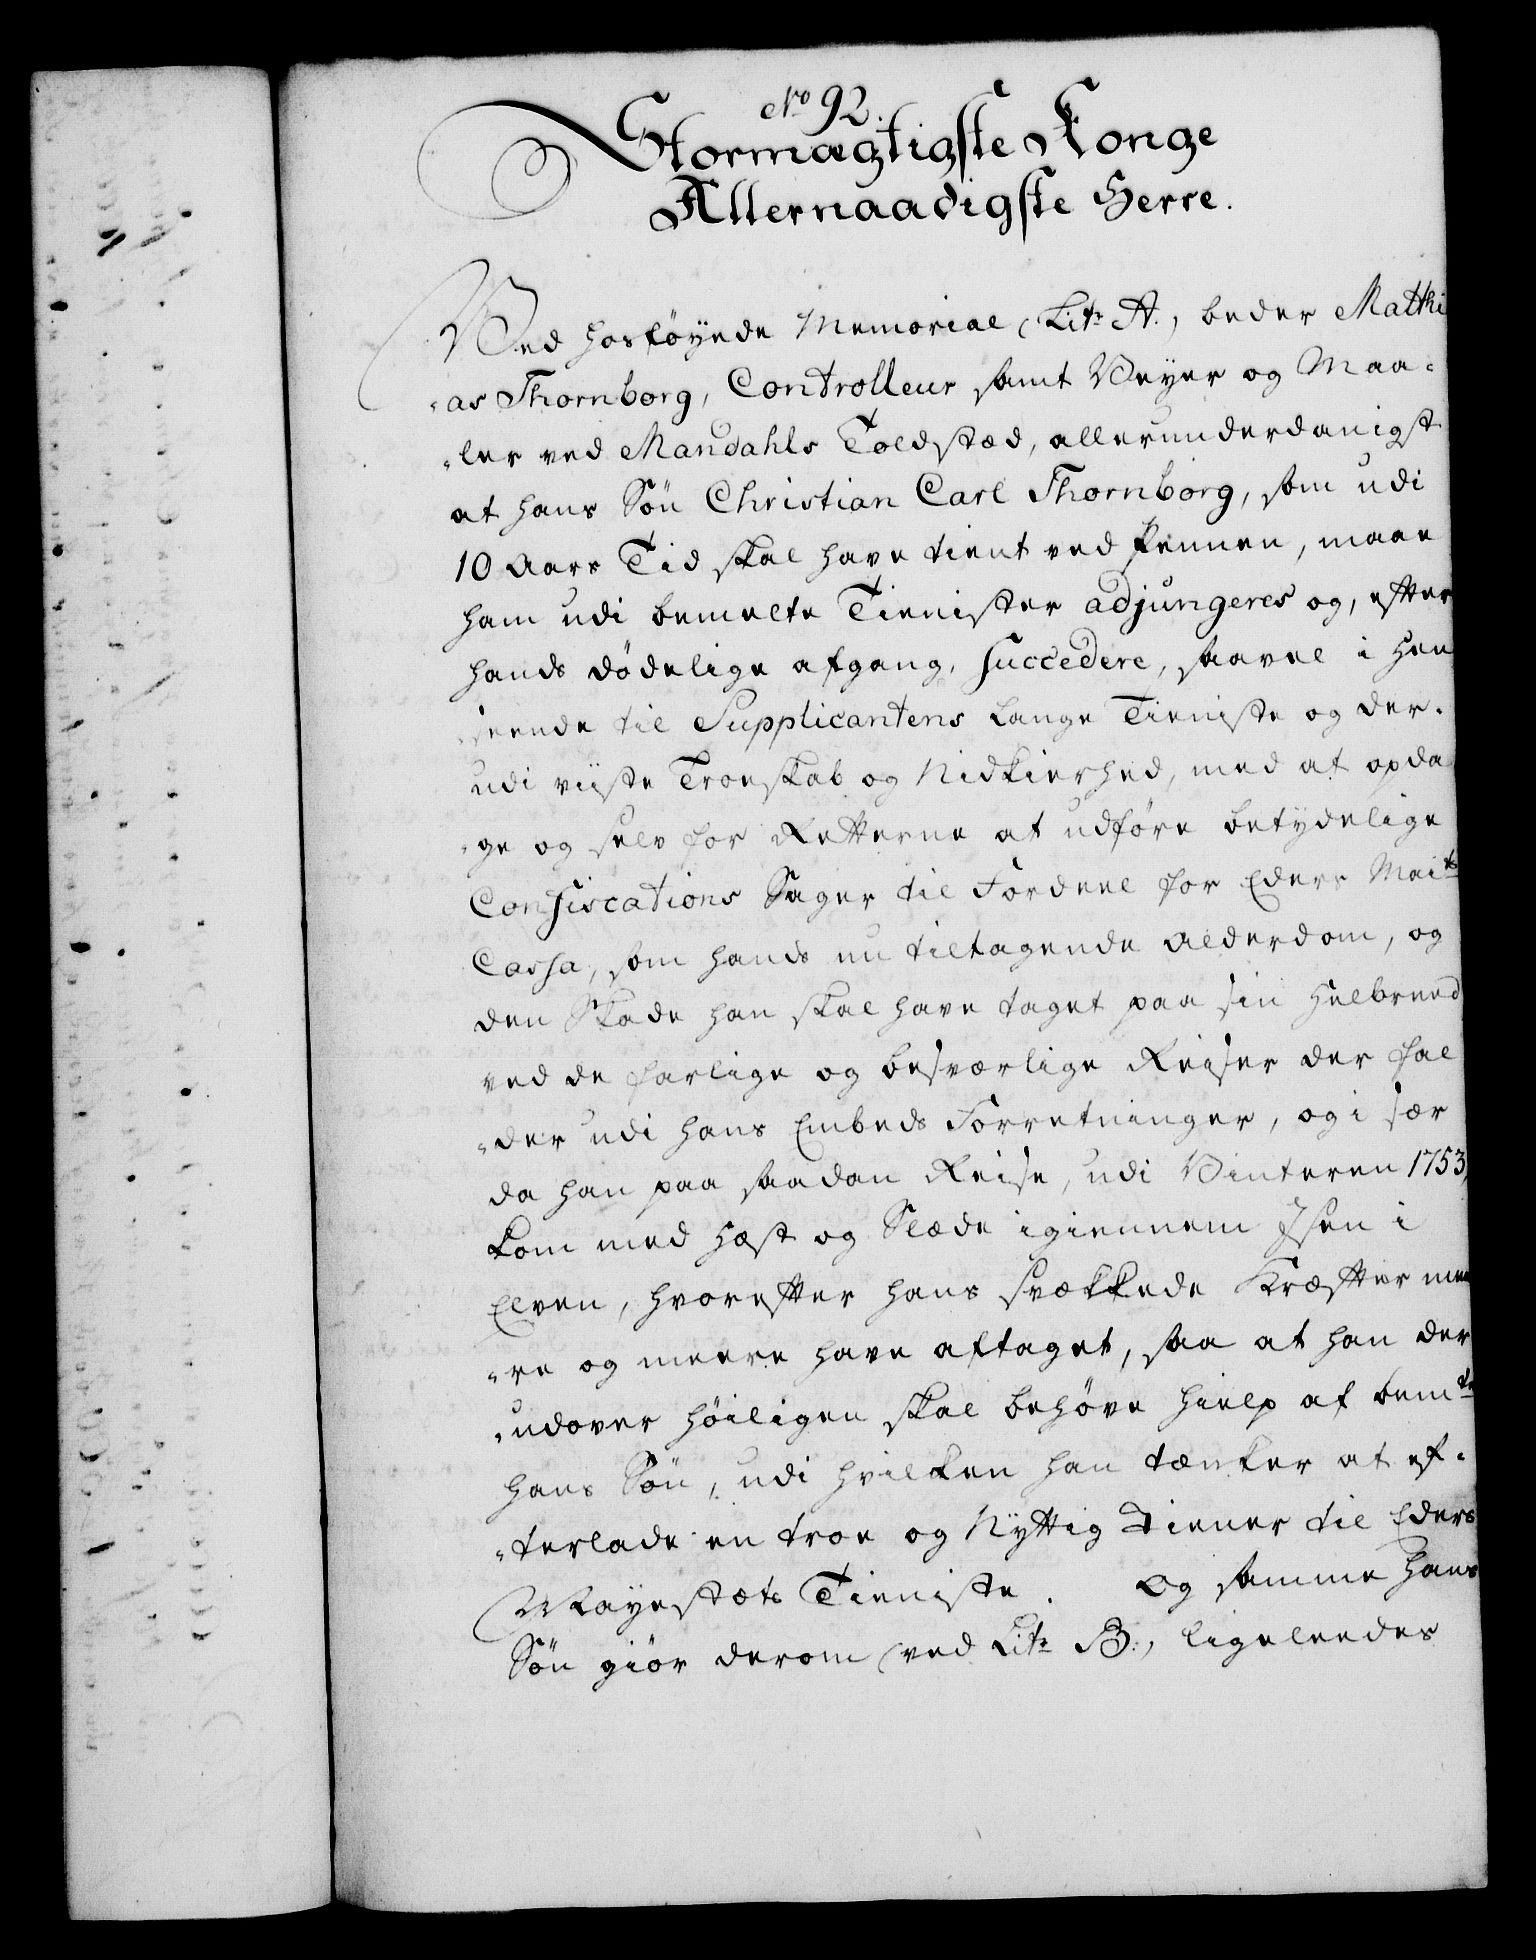 No 92.
Stormægtigste Konge
Allernaadigste Herre.
Ved hosföyede Memorial (Litr A., beder Mathi
-as Thornborg, Controlleur samt Veyer og Maa-
-ler ved Mandahls Toldstæd, allerunderdanigst
at hans Sön Christian Carl Thornborg, som udi
10 Aars Tid skal have tient ved Pennen, maae
ham udi bemelte Tienister adjungeres og, efter
hands dödelige afgang, succedere, saavel i Hen
-seende til Supplicantens lange Tieniste og der-
udi viiste Troeskab og Nidkierhed, med at opda
-ge og selv for Retterne at udföre betydelige
Confiscations Sager til Fordeel for Eders Maits
Cassa, som hands nu tiltagende Alderdom, og
den Skade han skal have taget paa sin Helbreed
ved de farlige og besværlige Reiser der fal
-der udi hans Embeds Forretninger, og i sær
da han paa saadan Reise, udi Vinteren 1753,
kom med Hæst og Slæde igiennem Isen i
Elven, hvorefter hans svækkede Kræfter mee
-re og meere have aftaget, saa at han der
-udover höiligen skal behöve Hielp af bemte
hans Sön, udi hvilken han tænker at ef-
-terlade en troe og Nyttig Tiener til Eders
Mayestæts Tieniste. Og samme hans
Sön giör derom (ved Litr B., ligeleedes